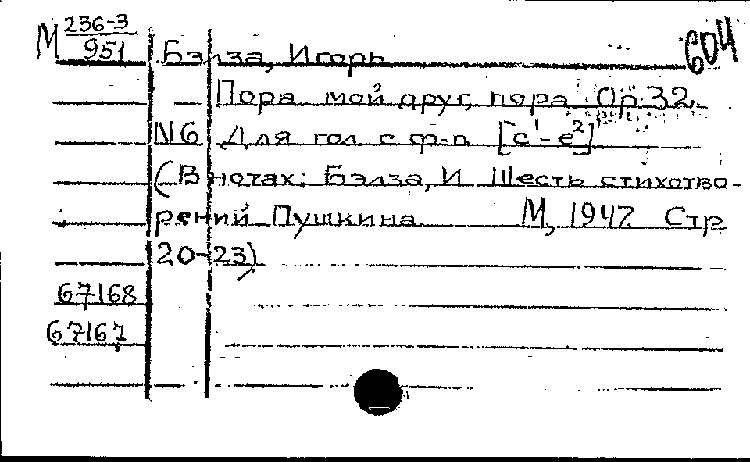 М 236-3
951
604
Бэлза, Игорь
Пора мой друг, пора Ор. 32
N6 Для гол. с ф-п. [c¹-e²]
(В нотах: Бэлза, И. Шесть стихотво-
рений Пушкина. М, 1947. Стр
20-23)
67168
67167